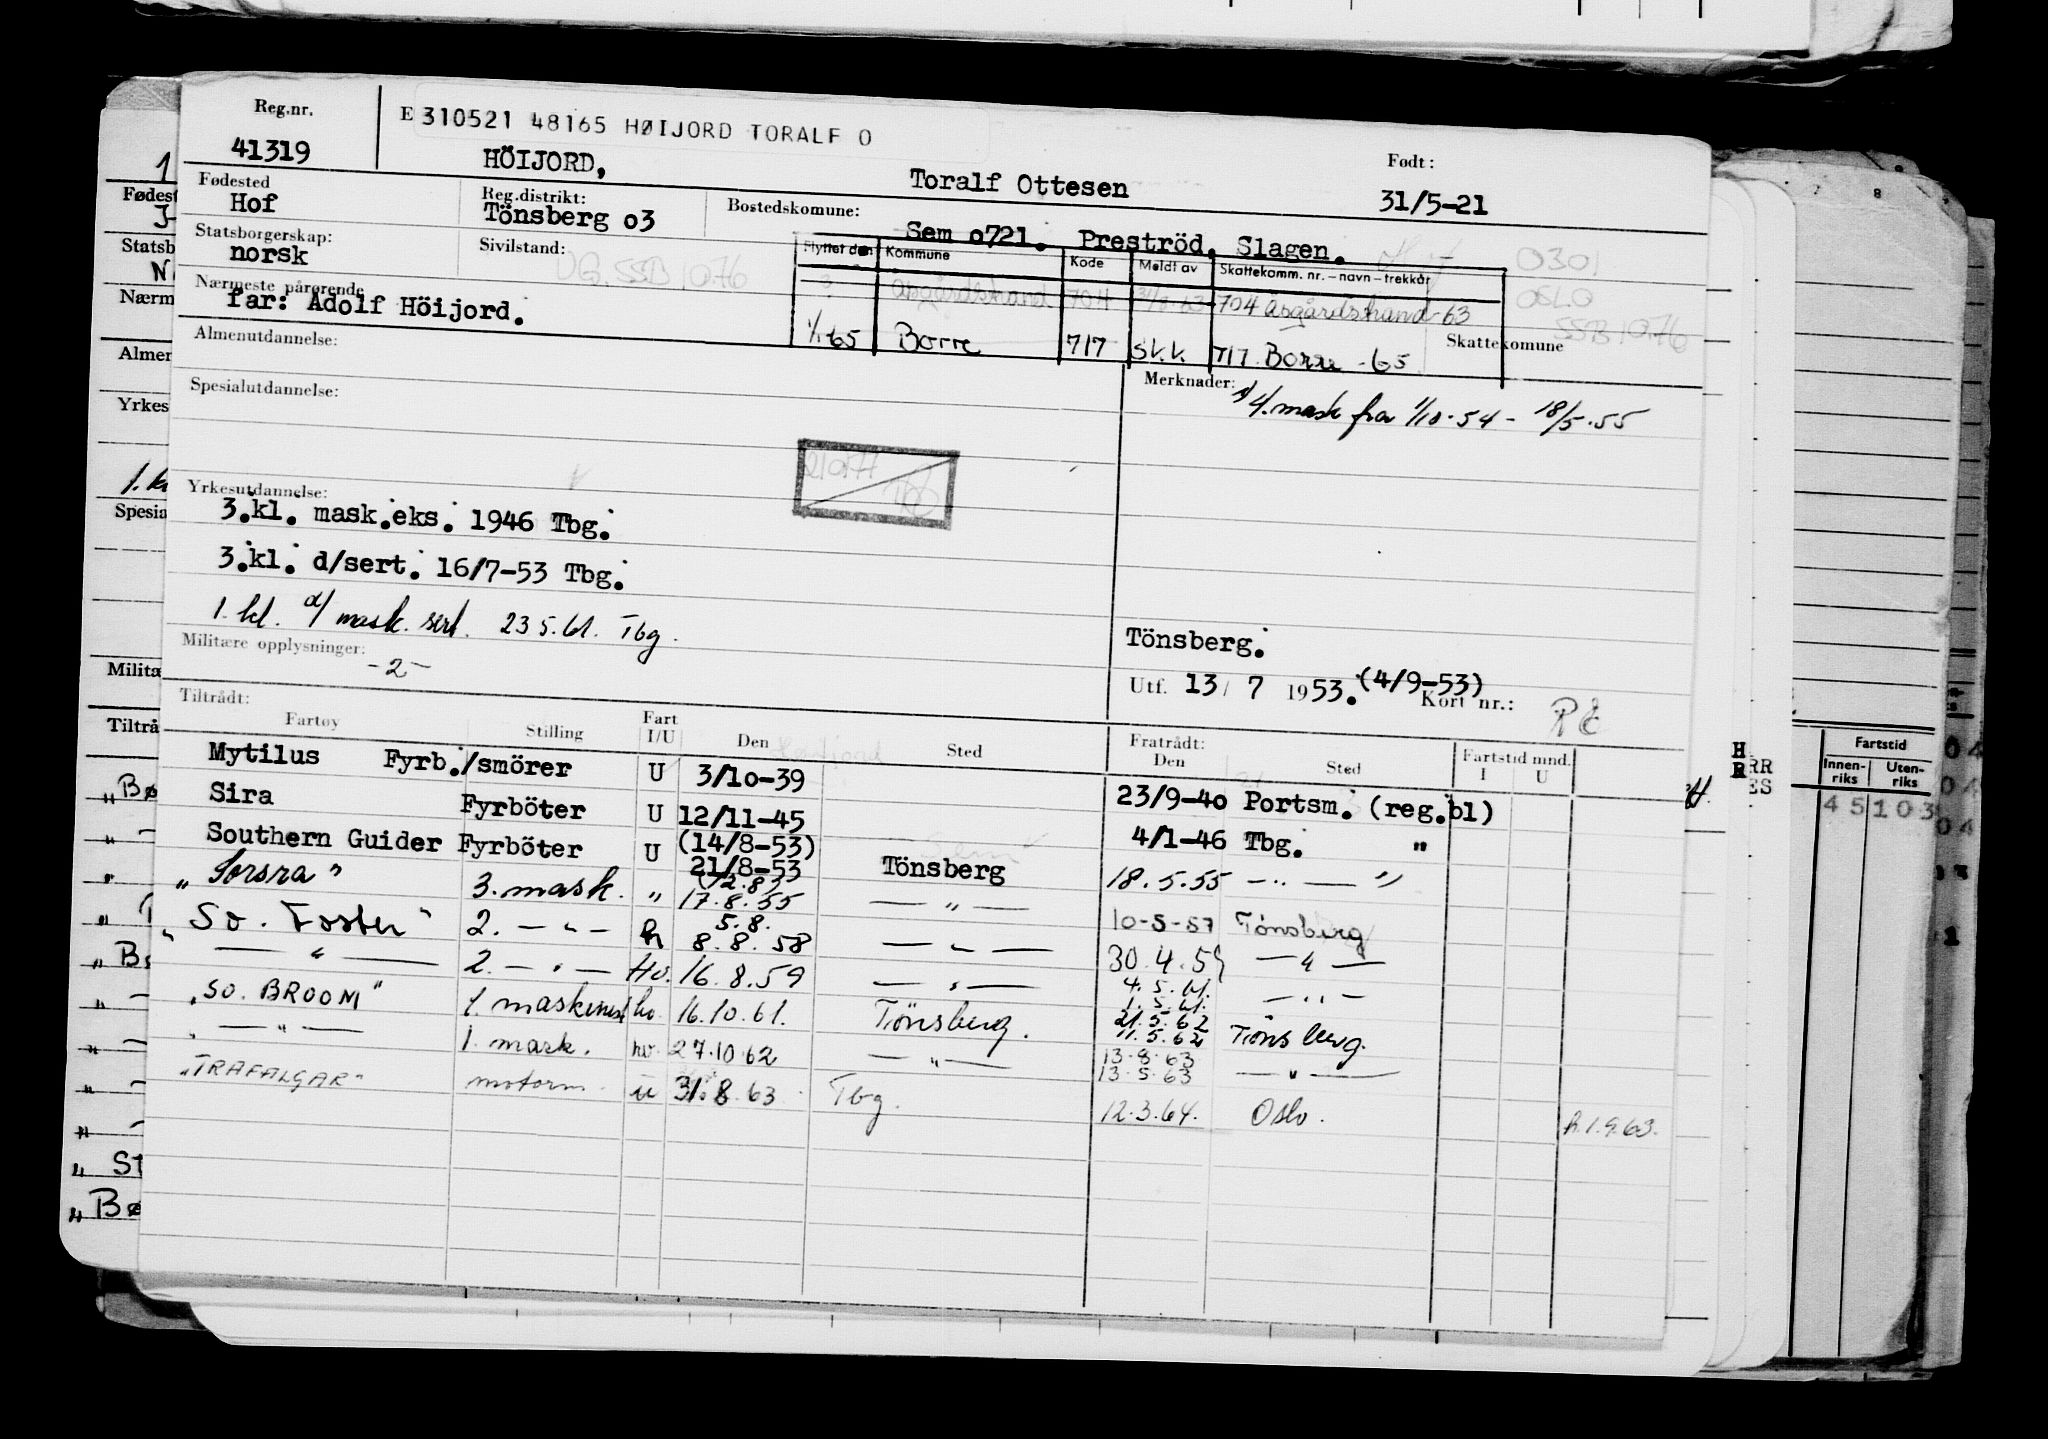 Reg.nr.
41319
E 310521 48165 HØIJORD TORALF O
HÖIJORD, Toralf Ottesen
Født:
31/5-21
Fødested
Hof
Reg.distrikt:
Tönsberg o3
Bostedskomune:
Sem o721. Preströd. Slagen.
Statsborgerskap:
norsk
Sivilstand:
UG. SSB 10.76
Flyttet den Kommune Kode Meldt av Skattekomm. nr. – navn – trekkår
? Åsgårdstrand 704 63 704 Åsgårdstrand - 63
1/1 65 Borre 717 Sk.k. 717 Borre - 65
0301
OSLO
SSB 10.76
Nærmeste pårørende
far: Adolf Höijord.
Skattekomune
Almenutdannelse:
Merknader:
1) 4. mask fra 1/10-54 - 18/5.55
Spesialutdannelse:
Yrkesutdannelse:
3.kl. mask.eks. 1946 Tbg.
3.kl. d/sert. 16/7-53 Tbg.
1. kl. d/ mask. sert. 23 5.61. Tbg.
Militære opplysninger:
-2-
Tönsberg.
Utf. 13/ 7 1953. (4/9-53)
Kort nr.:
Tiltrådt:
Fartøy Stilling Fart I/U Den Sted
Fratrådt:
Den Sted Fartstid mnd. I U
Mytilus Fyrb./smörer U 3/10-39 23/9-40 Portsm. (reg.bl)
Sira Fyrböter U 12/11-45 4/1-46 Tbg. "
Southern Guider Fyrböter U (14/8-53) 21/8-53 Tönsberg 18.5.55 — " — "
"Sorsra" 3. mask. " (12.8) 17.8.55 — " — 10-5-57 Tønsberg
"So. Foster" 2. — " — h 5.8. 8.8.58 — " — 30.4.59 — " —
— " — 2. — " — Hv. 16.8.59 — " — 4.5.61. 1.5.61. — " —
"SO. BROOM" 1. maskinist hv. 16.10.61. Tönsberg. 21.5.62 11.5.62 Tönsberg.
— " — 1. mask. hv. 27.10.62 — " — 13.8.63 13.5.63 — " —
"TRAFALGAR" motorm. u 31.8.63 Tbg. 12.3.64. Oslo. R.1.9.63.
Fartstid
Innen-riks Uten-riks
45 103